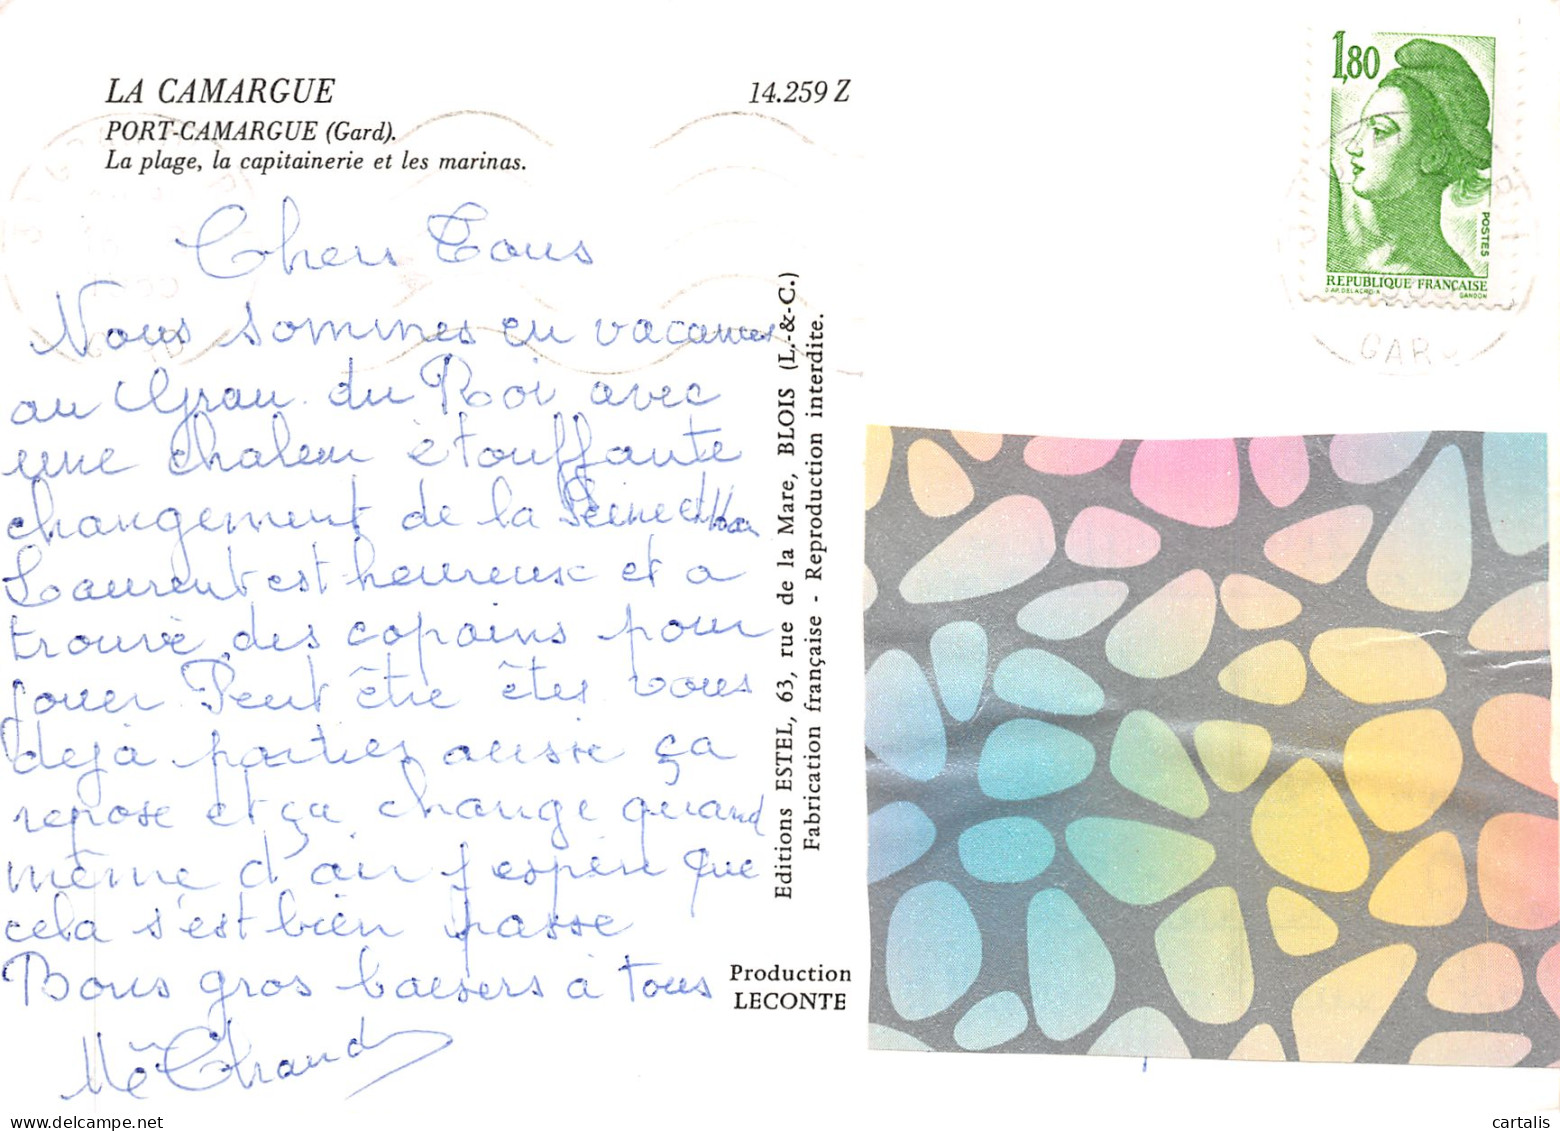 LA CAMARGUE
14.259 Z
PORT-CAMARGUE (Gard).
La plage, la capitainerie et les marinas.
Chers Tous
Nous sommes en vacances
au Grau du Roi avec
une chaleur étouffante
changement de la Seine
Laurent est heureux et a
trouvé des copains pour
jouer Peut être êtes vous
dejà parties aussi ça
repose et ça change quand
même d'air j'espère que
cela s'est bien passé
Bons gros baisers à tous
Editions ESTEL, 63, rue de la Mare, BLOIS (L.-&-C.)
Fabrication française - Reproduction interdite.
Production
LECONTE
1,80
POSTES
REPUBLIQUE FRANÇAISE
D'AP. DELACROIX
GANDON
GARD
cartalis